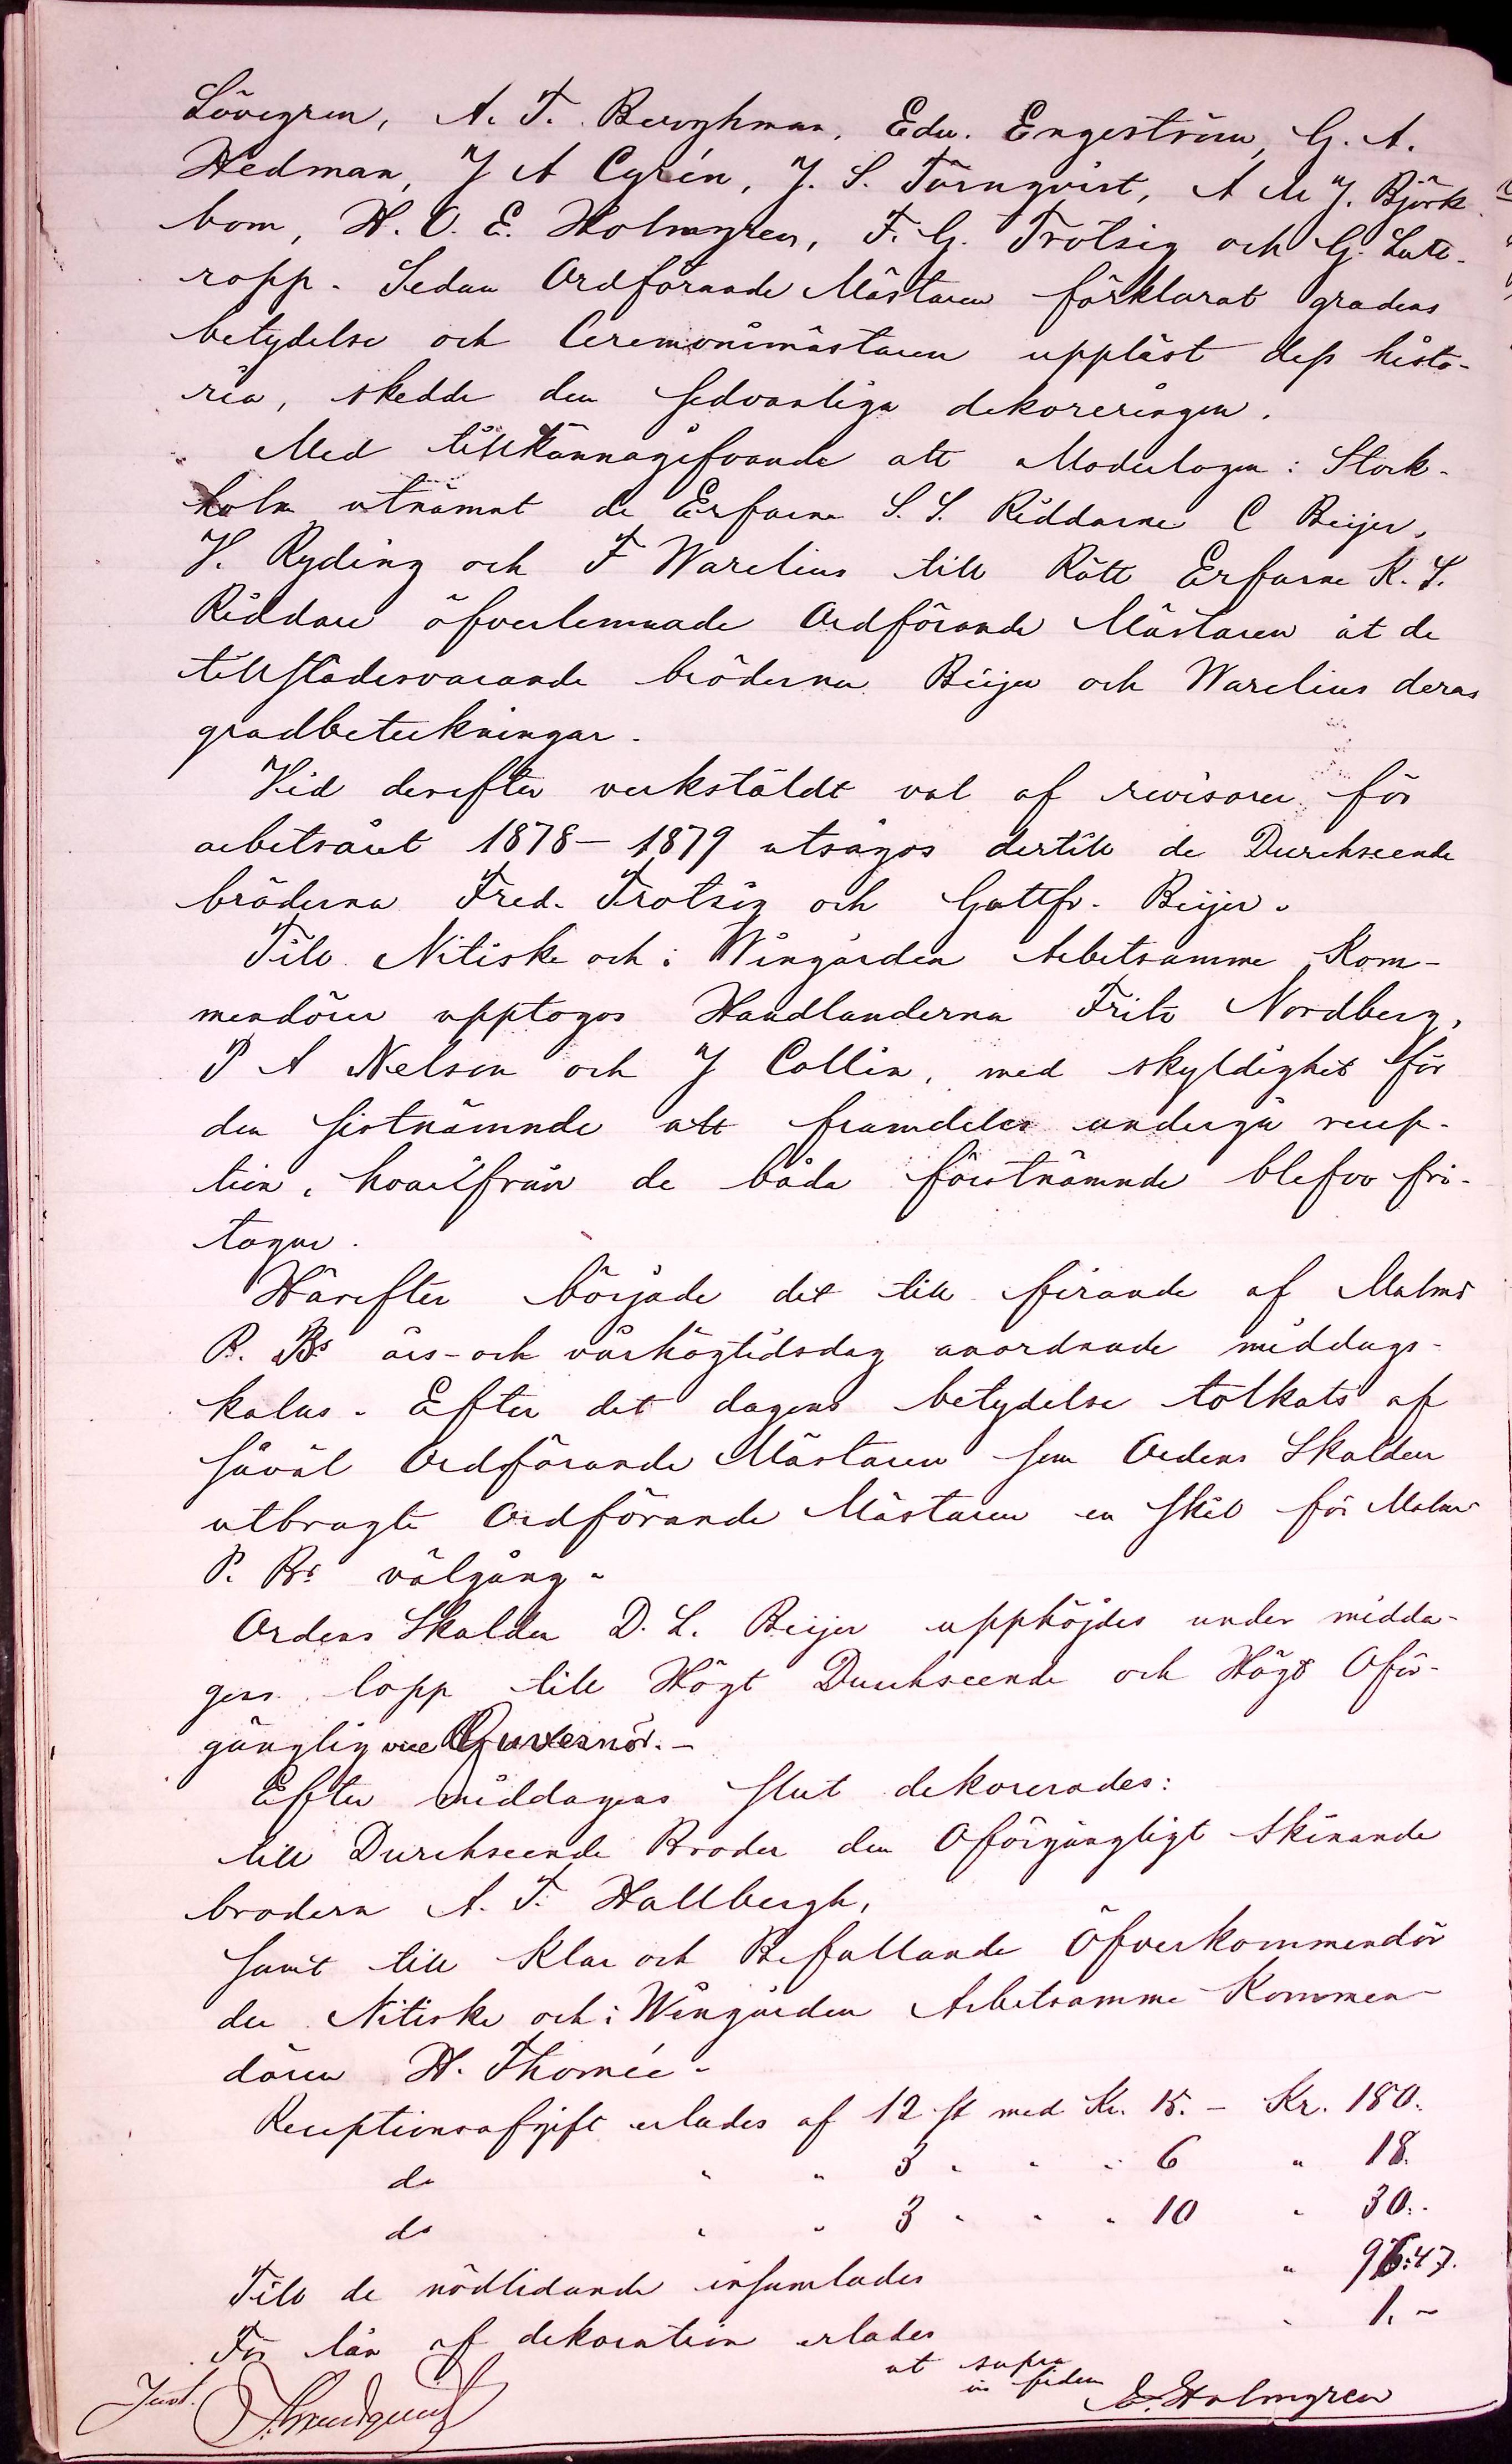 Lövegren, A. T. Berghman, Edv. Engeström, G. A.
Hedman, J A Cyrén, J. S. Törnqvist, A M J. Björk-
bom, H. O. E. Holmgren, F. G. Trotsig och G. Lutt-
ropp. Sedan Ordförande Mästaren förklarat gradens
betydelse och Ceremonimästaren uppläst dess histo-
ria, skedde den sedvanliga dekoreringen.
Med tillkännagifvande att Moderlogen i Stock-
holm utnämnt de Erfarne S. S. Riddarne C Beijer,
V. Ryding och F Warelius till Rätt Erfarne K. S.
Riddare öfverlemnade Ordförande Mästaren åt de
tillstädesvarande bröderna Beijer och Warelius deras
gradbeteckningar.
Vid derefter verkstäldt val af revisorer för
arbetsåret 1878–1879 utsågos dertill de Durchseende
bröderna Fred. Trotsig och Gottfr. Beijer.
Till Nitiske och i Wingården Arbetsamme Kom-
mendörer upptogos Handlanderna Fritz Nordberg,
P A Nelson och J Collin, med skyldighet för
den sistnämnde att framdeles undergå recep-
tion, hvarifrån de båda förstnämnde blefvo fri-
tagne.
Härefter började det till firande af Malmö
P. Bs års- och vårhögtidsdag anordnade middags-
kalas. Efter det dagens betydelse tolkats af
såväl Ordförande Mästaren som Ordens Skalden
utbragte Ordförande Mästaren en skål för Malmö
P. Bs välgång.
Ordens Skalden D. L. Beijer upphöjdes under midda-
gens lopp till Högt Durchseende och Högt Oför-
gänglig vice Guvernör.–
Efter middagens slut dekorerades:
till Durchseende Broder den Oförgängligt Skinande
brodern A. T. Hallbergh,
samt till Klar och Befallande Öfverkommendör
den Nitiske och i Wingården Arbetsamme Kommen-
dören H. Thomée.
Receptionsafgift erlades af 12 st med Kr. 15. – Kr. 180.
do " " 3 " " " 6 " 18.
do " " 3 " " " 10 " 30.
Till de nödlidande insamlades " 96:47.
För lån af dekoration erlades " 1. –
ut supra
in fidem
E. Holmgren
Just.